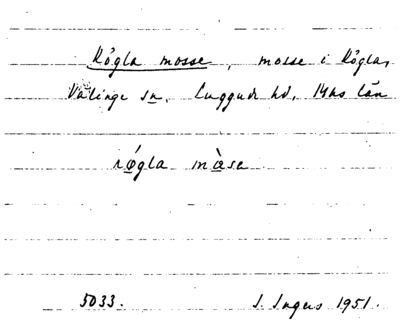 Rögla mosse, mosse i Rögla,
Välinge sn. Luggude hd, Mhs län
rø̀gla mòsa
5033. I. Ingers 1951.